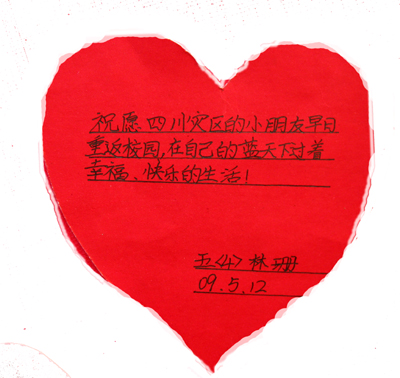 祝愿四川灾区的小朋友早日
重返校园,在自己的蓝天下过着
幸福、快乐的生活!
五〈4〉林珊
09.5.12